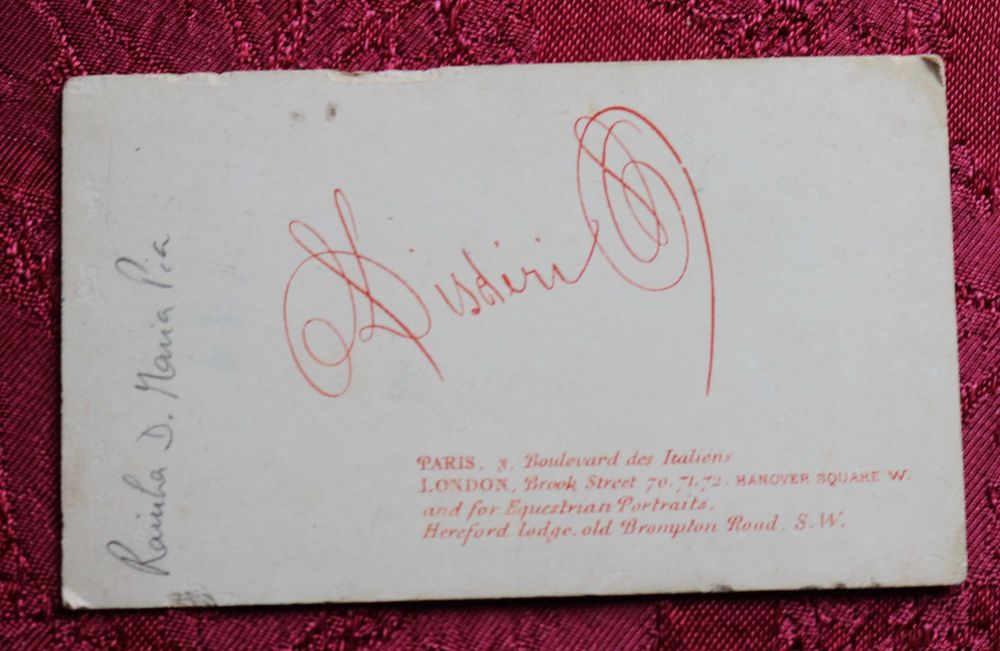 Disdéri
PARIS, 3, Boulevard des Italiens
LONDON, Brook Street 70.71.72. HANOVER SQUARE W.
and for Equestrian Portraits,
Hereford lodge, old Brompton Road. S.W.
Rainha D. Maria Pia